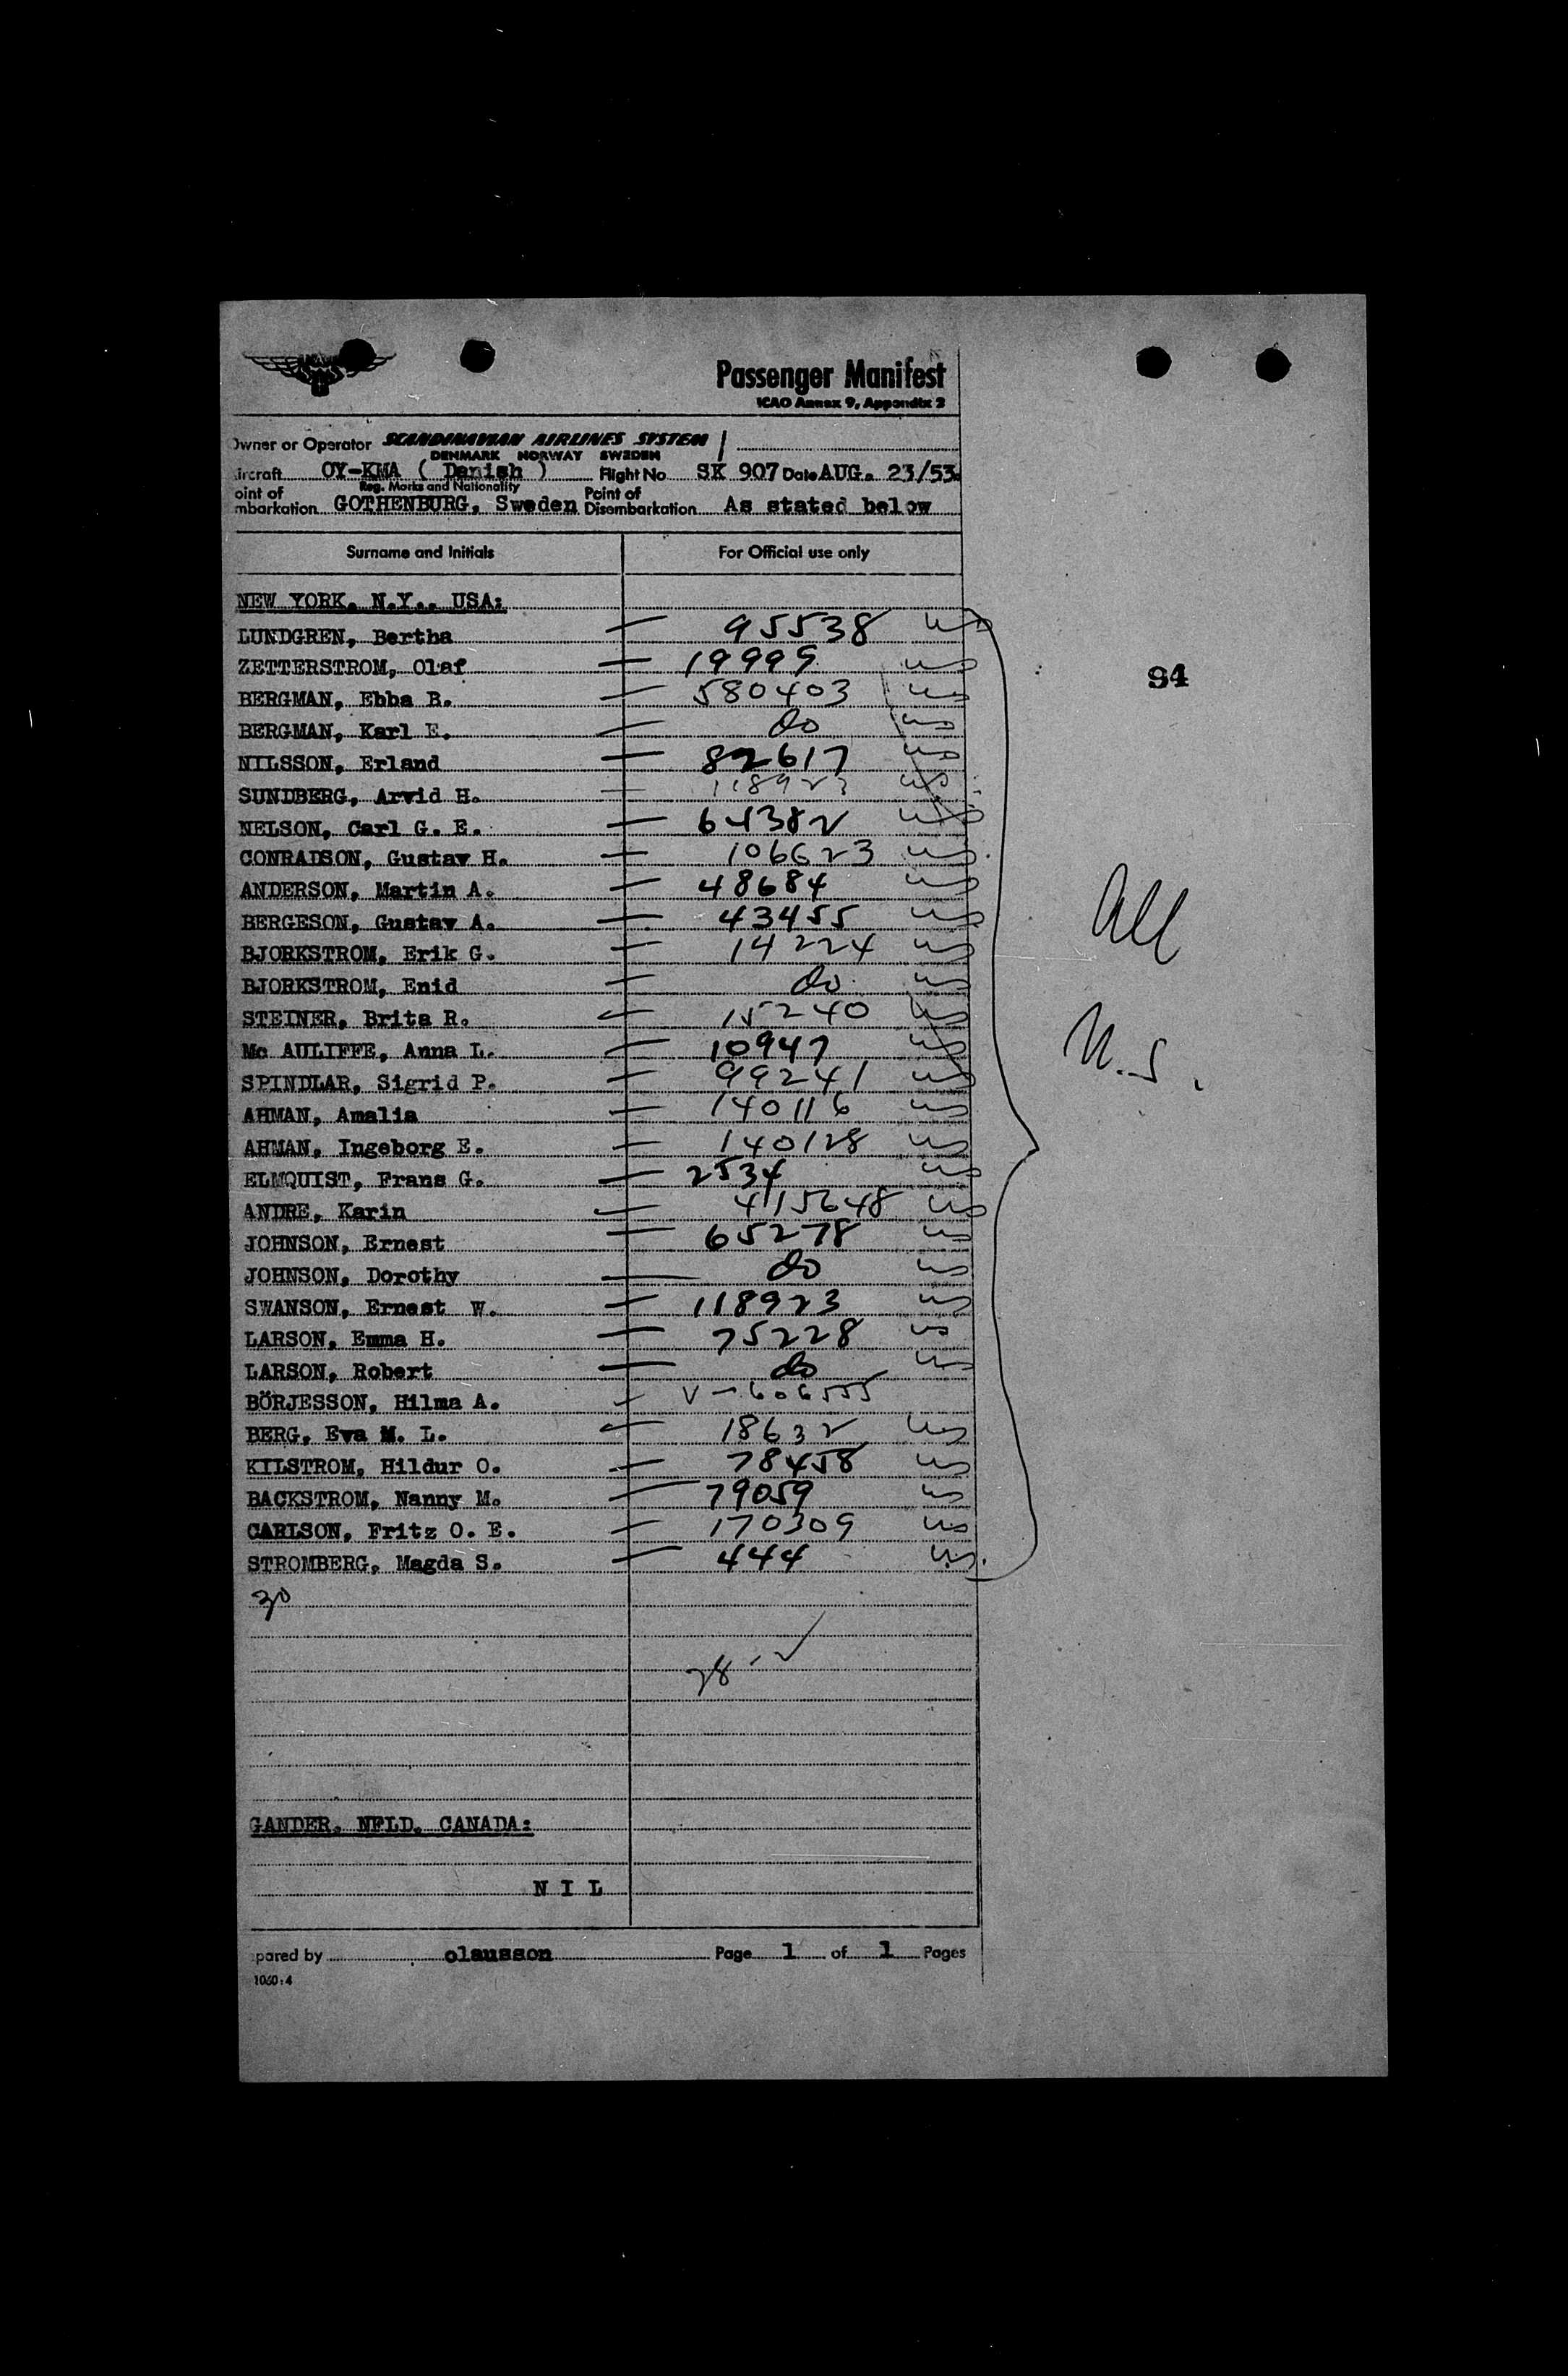 Passenger Manifest
ICAO Annex 9, Appendix 2
Owner or Operator SCANDINAVIAN AIRLINES SYSTEM
DENMARK NORWAY SWEDEN
ircraft OY-KMA ( Danish ) Flight No SK 907 Date AUG. 23/53.
Reg. Marks and Nationality
oint of mbarkation GOTHENBURG, Sweden Point of Disembarkation As stated below
Surname and Initials For Official use only
NEW YORK, N.Y., USA:
LUNDGREN, Bertha — 95538 us
ZETTERSTROM, Olaf — 19999 us
94
BERGMAN, Ebba B. — 580403 us
BERGMAN, Karl E. — do us
NILSSON, Erland — 82617 us
SUNDBERG, Arvid H. — 118923 us
NELSON, Carl G. E. — 64382 us
CONRADSON, Gustav H. — 106623 us
ANDERSON, Martin A. — 48684 us
BERGESON, Gustav A. — 43455 us
All
BJORKSTROM, Erik G. — 14224 us
BJORKSTROM, Enid — do us
STEINER, Brita R. — 15240 us
Mc AULIFFE, Anna L. — 10947 us
U.S.
SPINDLAR, Sigrid P. — 99241 us
AHMAN, Amalia — 140116 us
AHMAN, Ingeborg E. — 140128 us
ELMQUIST, Frans G. — 2534 us
ANDRE, Karin — 415648 us
JOHNSON, Ernest — 65278 us
JOHNSON, Dorothy — do us
SWANSON, Ernest W. — 118923 us
LARSON, Emma H. — 75228 us
LARSON, Robert — do us
BÖRJESSON, Hilma A. — V-606555
BERG, Eva M. L. — 18632 us
KILSTROM, Hildur O. — 78458 us
BACKSTROM, Nanny M. — 79059 us
CARLSON, Fritz O. E. — 170309 us
STROMBERG, Magda S. — 444 u.s.
30
28 - ✓
GANDER, NFLD, CANADA:
N I L
pared by olausson Page 1 of 1 Pages
1060:4